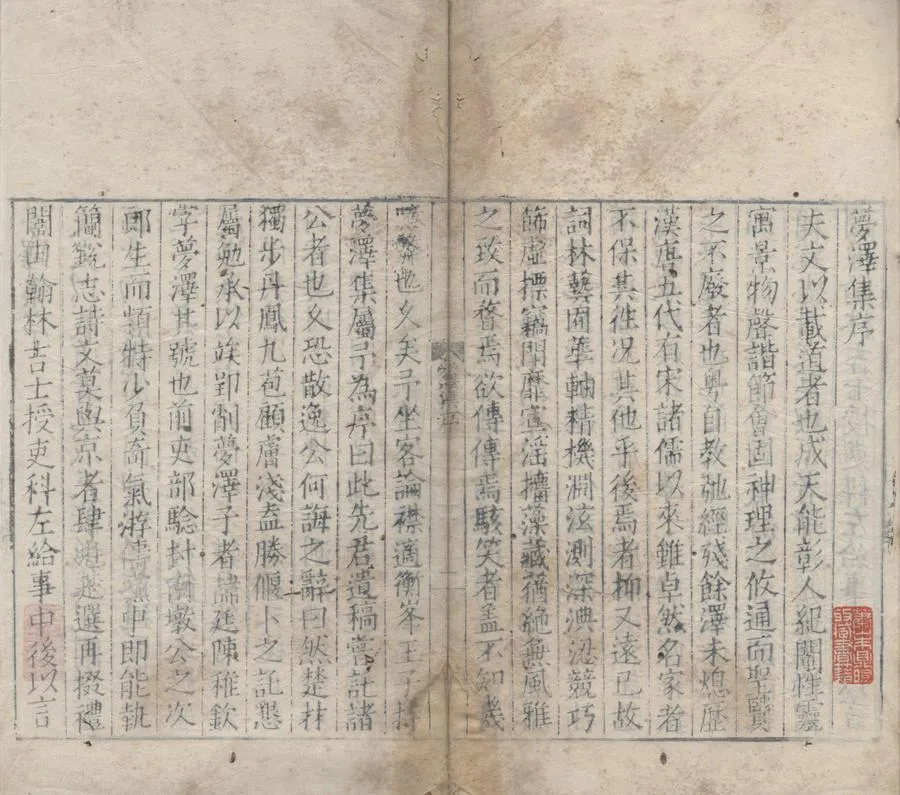 夢澤集序
夫文以載道者也成天能彰人紀闡性靈
寓景物聲諧節會固神理之攸通而聖賢
之不廢者也粵自教弛經殘餘澤未熄歷
漢唐五代有宋諸儒以來雖卓然名家者
不保其徃况其他乎後焉者抑又遠已故
詞林藝囿華軸精機淵泫測深淟涊競巧
飾虛摽竊閙靡宣淫擂藻藏蕕絕無風雅
之致而瞀焉欲傳傳焉駭笑者盖不知幾
也久矣予坐客論襟適衡峯王子持
夢澤集屬予為弁曰此先君遺稿嘗託諸
公者也又恐散逸公何誨之辭曰然楚材
獨步丹鳳九苞顧膚淺盍勝偃卜之託懇
屬勉承以竢郢削夢澤子者諱廷陳稚欽
字夢澤其號也前吏部驗封南墩公之次
郎生而穎特少負奇氣游黨中即能執
簡銳志請文莫與京者肆選再掇禮
闈由翰林吉士授吏科左給事中後以言
蕭山朱鼎煦收藏書籍